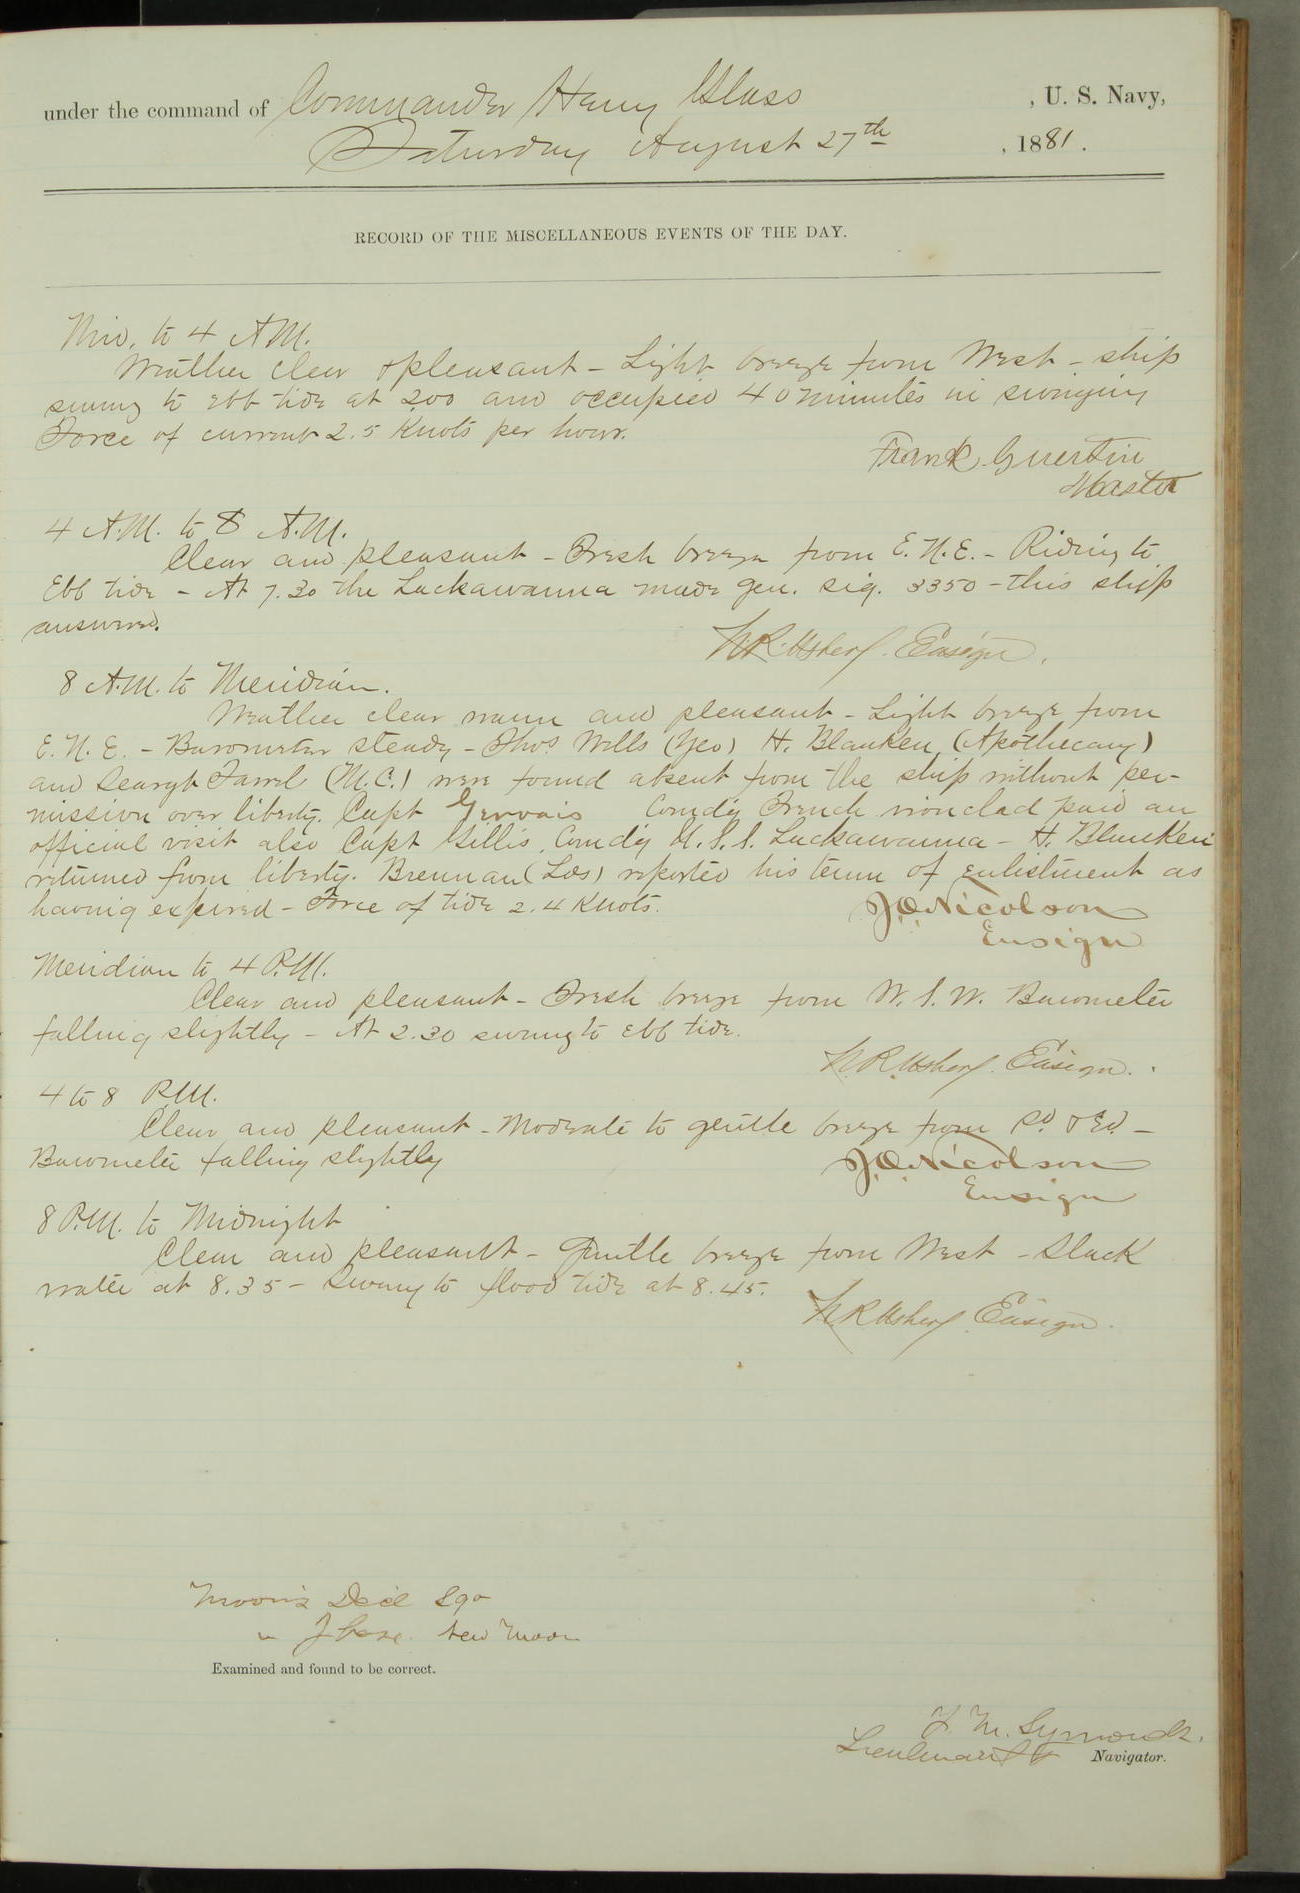 under the command of Commander Henry Glass , U. S. Navy,
Saturday August 27th , 1881.
RECORD OF THE MISCELLANEOUS EVENTS OF THE DAY.
Mid. to 4 A.M.
Weather clear & pleasant - Light breeze from West - ship
swung to ebb tide at 2.00 and occupied 40 minutes in swinging
Force of current 2.5 Knots per hour.
Frank Guertin
Master
4 A.M. to 8 A.M.
Clear and pleasant - Fresh breeze from E.N.E. - Riding to
Ebb tide - At 7.30 the Lackawanna made gen. sig. 3350 - this ship
answered.
N.R. Usher Ensign.
8 A.M. to Meridian.
Weather clear warm and pleasant - Light breeze from
E.N.E. - Barometer steady - Thos Wells (Yeo) H. Blanken (Apothecary)
and Farrel (M.C.) were found absent from the ship without per-
mission over liberty. Capt Gervais Comd'g French ironclad paid an
official visit also Capt Gillis, Comd'g U.S.S. Lackawanna - H. Blanken
returned from liberty. Brennan (Lds) reported his term of enlistment as
having expired - Force of tide 2.4 Knots.
J.O. Nicolson
Ensign
Meridian to 4 P.M.
Clear and pleasant - Fresh breeze from W.S.W. Barometer
falling slightly - At 2.30 swung to ebb tide.
N.R. Usher Ensign.
4 to 8 P.M.
Clear and pleasant - Moderate to gentle breeze from Sd. & Ed. -
Barometer falling slightly
J.O. Nicolson
Ensign
8 P.M. to Midnight
Clear and pleasant - Gentle breeze from West - Slack
water at 8.35 - Swung to flood tide at 8.45.
N.R. Usher Ensign.
Moon's Decl
" Phase. New Moon
Examined and found to be correct.
F. M. Symonds.
Lieutenant & Navigator.